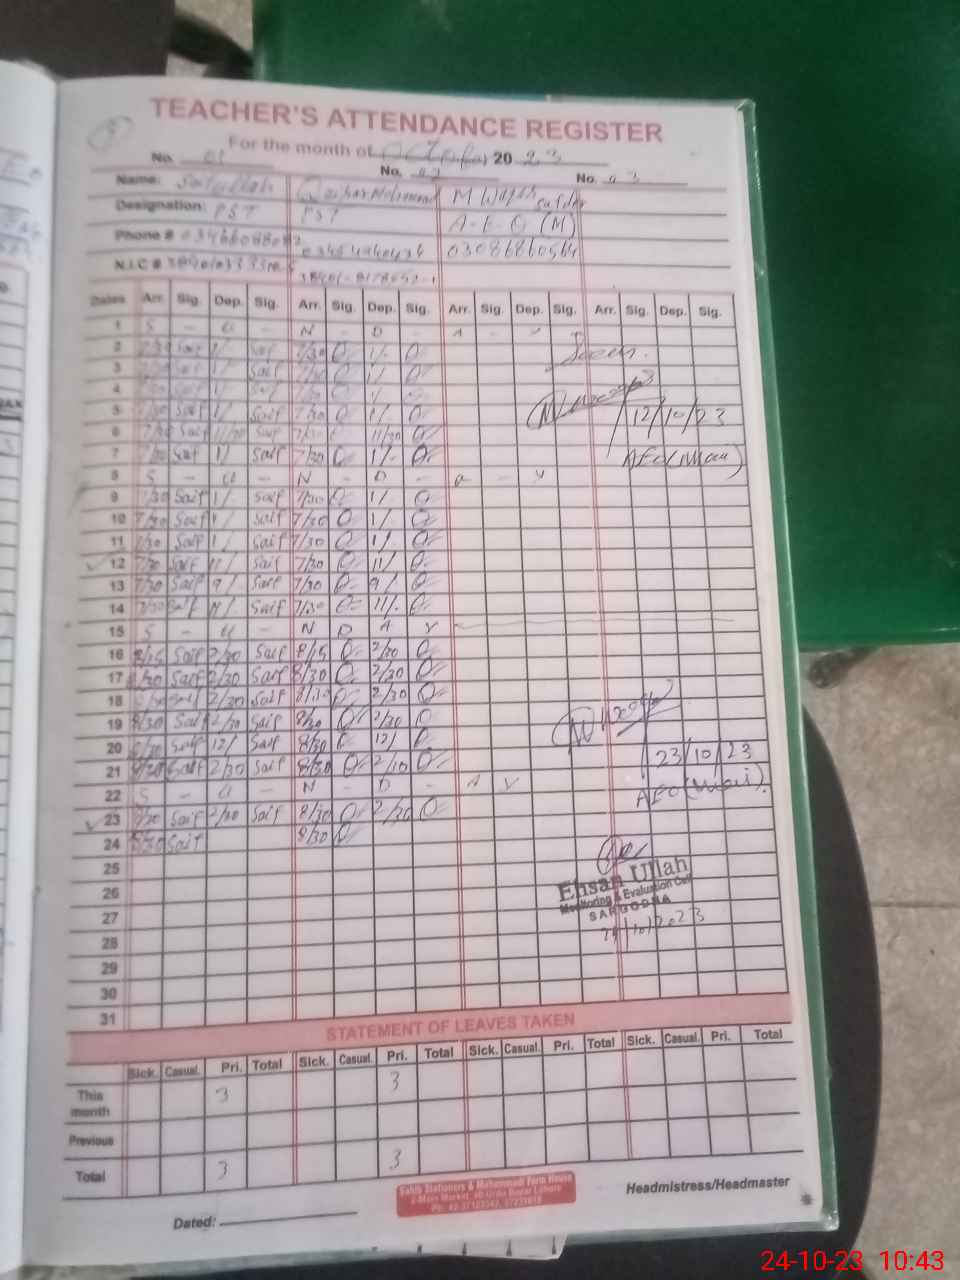 TEACHER'S ATTENDANCE REGISTER
For the month of October 2023
No. 01 No. 02 No. 03
Name: Saifullah M Waqas
Designation: PST PST A-E-O (M)
Phone #
N.I.C #
Dates Arr. Sig. Dep. Sig. Arr. Sig. Dep. Sig. Arr. Sig. Dep. Sig. Arr. Sig. Dep. Sig.
1 S - U - N - D - A - Y
2 7/30 Saif 1/- Saif 7/30 1/-
Seen.
3 7/30 Saif 1/ Saif 7/30 1/
4 7/30 Saif 1/ Saif 7/30 1/
5 7/30 Saif 1/ Saif 7/30 1/
12/10/23
6 7/30 Saif 11/30 Saif 7/30 11/30
7 7/30 Saif 1/ Saif 7/30 1/-
AEO (Miani)
8 S - U - N - D - A - Y
9 7/30 Saif 1/- Saif 7/30 1/
10 7/30 Saif 1/ Saif 7/30 1/
11 7/30 Saif 1/ Saif 7/30 1/
12 7/30 Saif 11/ Saif 7/30 11/
13 7/30 Saif 9/ Saif 7/30 9/
14 7/30 Saif 11/ Saif 7/30 11/-
15 S - U - N D A Y
16 8/15 Saif 2/30 Saif 8/15 2/30
17 8/30 Saif 2/30 Saif 8/30 2/30
18 8/30 Saif 2/30 Saif 8/30 2/30
19 8/30 Saif 2/30 Saif 8/30 2/30
20 8/30 Saif 12/ Saif 8/30 12/
23/10/23
21 8/30 Saif 2/30 Saif 8/30 2/10
AEO (Miani).
22 S - U - N - D - A Y
23 8/30 Saif 2/30 Saif 8/30 2/30
24 8/30 Saif 8/30
25
Ehsan Ullah
26
Monitoring & Evaluation Cell
SARGODHA
27
24/10/2023
28
29
30
31
STATEMENT OF LEAVES TAKEN
Sick. Casual. Pri. Total Sick. Casual. Pri. Total Sick. Casual. Pri. Total Sick. Casual. Pri. Total
This month 3 3
Previous
Total 3 3
Sahib Stationers & Muhammadi Form House
Main Market, Urdu Bazar Lahore
Headmistress/Headmaster
Dated:
24-10-23 10:43